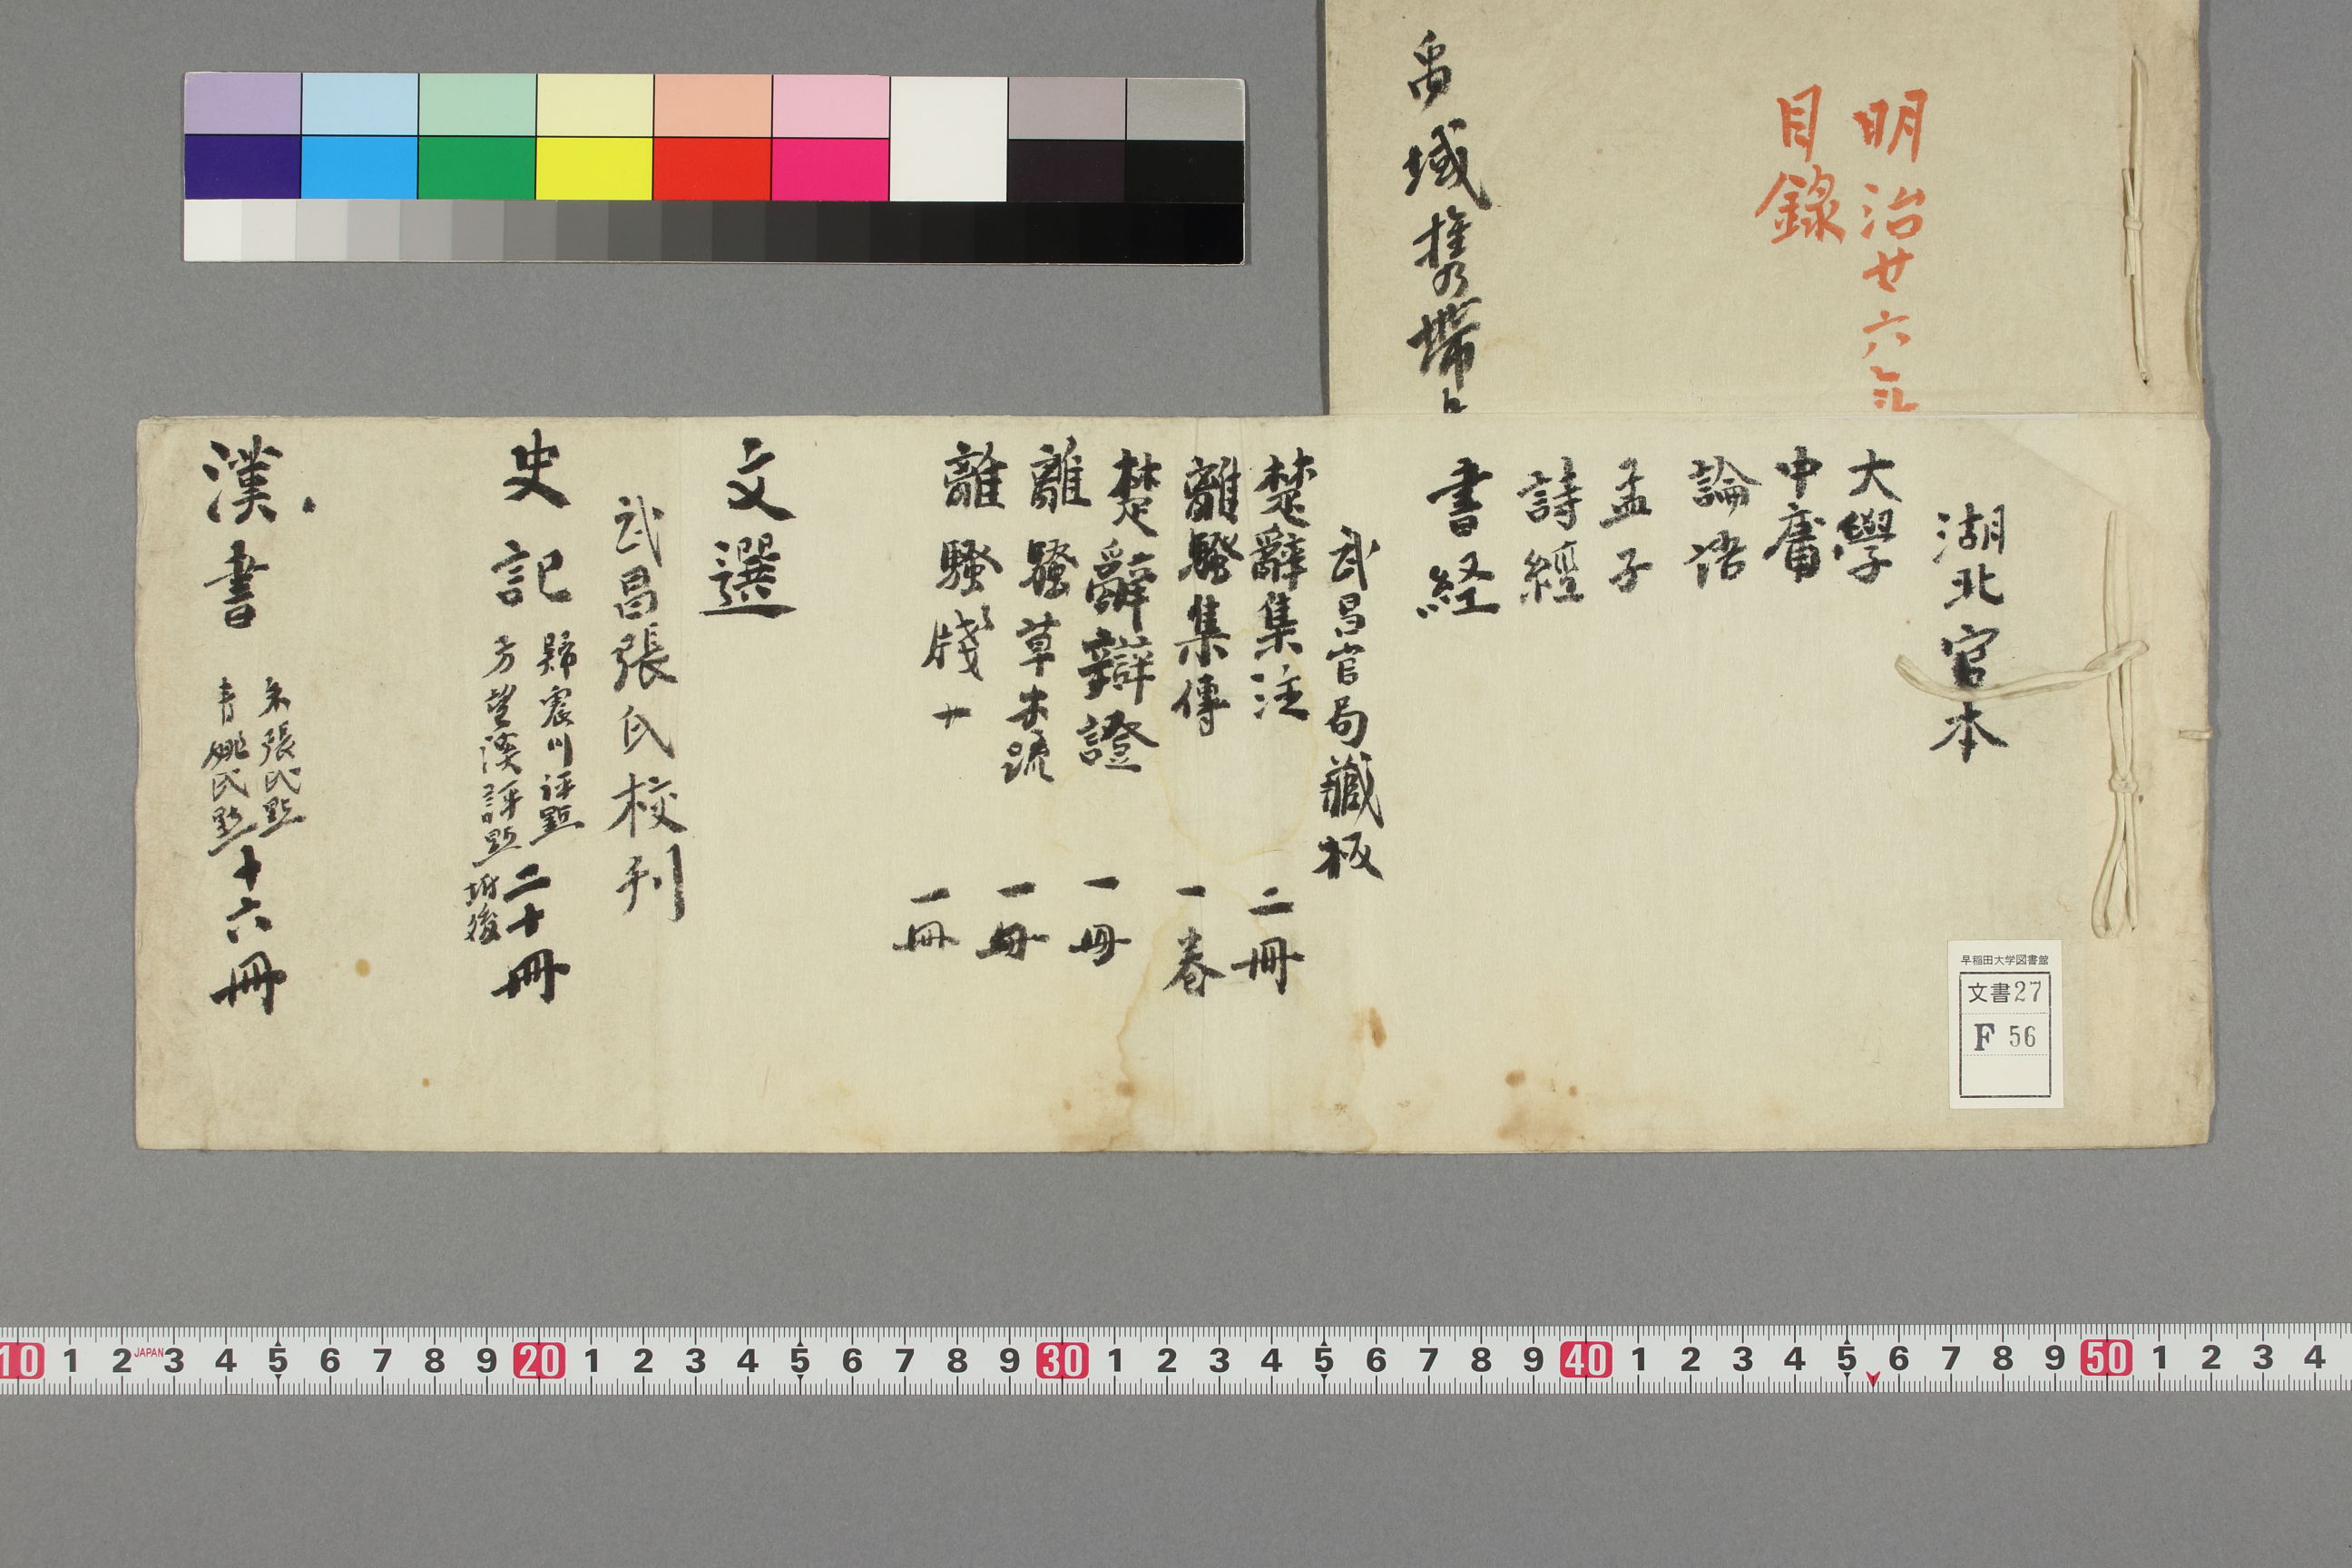 明治廿六年
目錄
禹域携帶
湖北官本
大學
中庸
論語
孟子
詩經
書経
武昌官局藏板
楚辭集注 二冊
離騷集傳 一卷
楚辭辯證 一冊
離騷草木疏 一冊
離騷牋 一冊
文選
武昌張氏校刊
史記 歸震川評點 方望溪評點 二十冊 坿後
漢書 朱張氏點 青姚氏點 十六冊
早稲田大学図書館
文書27
F 56
10 1 2 JAPAN 3 4 5 6 7 8 9 20 1 2 3 4 5 6 7 8 9 30 1 2 3 4 5 6 7 8 9 40 1 2 3 4 5 6 7 8 9 50 1 2 3 4